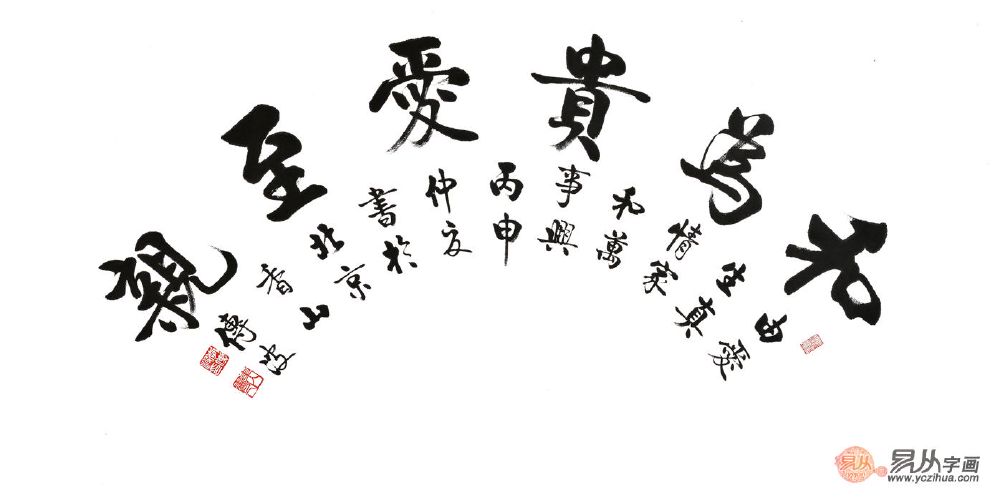 和為貴愛至親
由愛
生真
情家
和萬
事興
丙申
仲夏
書於
北京
香山
傅波
易从
易从字画
www.yczihua.com